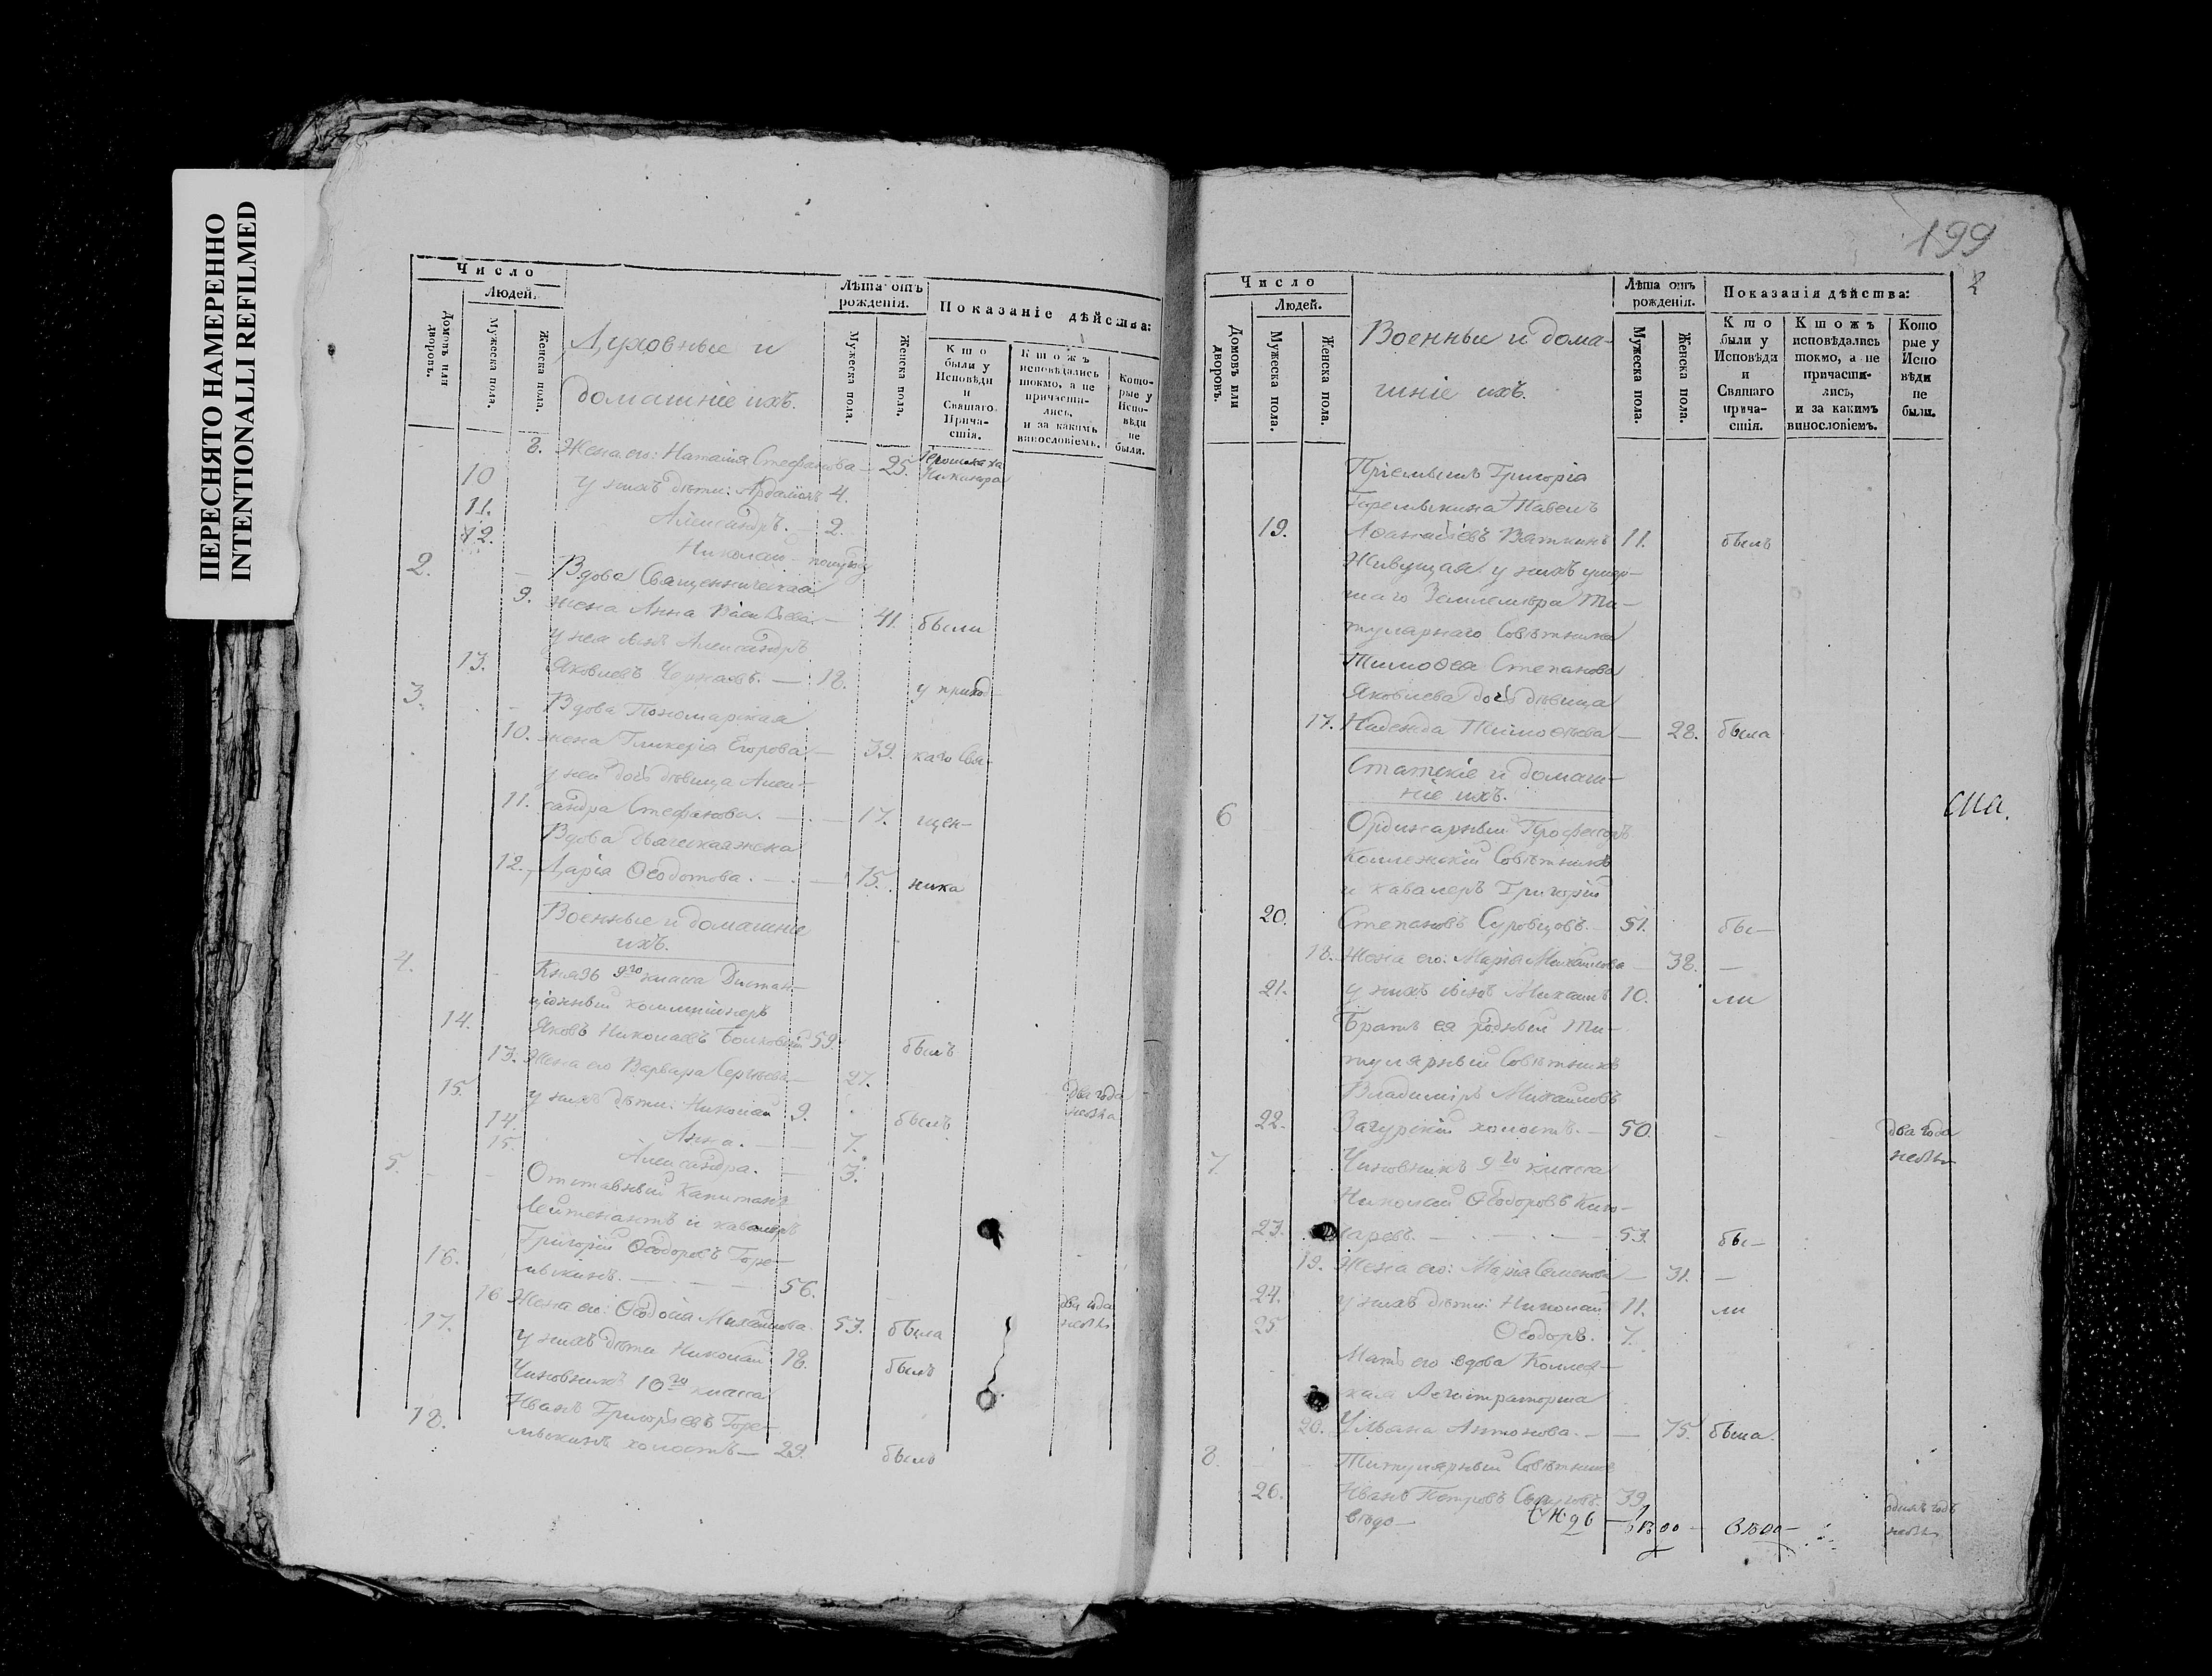 ПЕРЕСНЯТО НАМЕРЕННО
INTENTIONALLI REFILMED
Число
Людей.
Домовъ или дворовъ.
Мужеска пола.
Женска пола.
Духовные и
домашніе ихъ.
Лѣта отъ рожденія.
Мужеска пола.
Женска пола.
Показаніе дѣйства:
Кто были у Исповѣди и Святаго Прича-стія.
Ктожъ исповѣдались токмо, а не причасти-лись, и за какимъ винословіемъ.
Кото-рые у Испо-вѣди не были.
8. Жена его: Наталія Стефанова — 25.
10 у нихъ дѣти: 4.
11. Александръ. — 2.
12. Николай —
2. Вдова Священническая
9. жена Анна — 41. были
у нея сынъ Александръ
13. Яковлевъ — 18. у приход-
3. Вдова Пономарская
10. жена Гликерія Егорова — 39. каго Свя-
у ней дочь дѣвица Алек-
11. сандра Стефанова. — 17. щен-
Вдова Дьяческая жена
12. Дарія Ѳеодотова. — 75. ника
Военные и домашніе
ихъ.
4. Князь 9го класса Дистан-
ціонный
14. Яковъ Николаевъ 59. былъ
13. Жена его Варвара Сергѣева — 27. два года
15. у нихъ дѣти: Николай 9. былъ
14. Анна. — 7.
15. Александра. — 3.
5. Отставный Капитанъ
Лейтенантъ и кавалеръ
Григорій Ѳеодоровъ Горе-
16. мыкинъ. — 56. два года
16 Жена его: Ѳеодосія Михайлова. 53. была
17. у нихъ дѣти Николай 18. былъ
Чиновникъ 10го класса
Иванъ Григорьевъ Горе-
18. мыкинъ холостъ — 29. былъ
199
2
Число
Людей.
Домовъ или дворовъ.
Мужеска пола.
Женска пола.
Военные и дома-
шніе ихъ.
Лѣта отъ рожденія.
Мужеска пола.
Женска пола.
Показанія дѣйства:
Кто были у Исповѣди и Святаго прича-стія.
Ктожъ исповѣдались токмо, а не причасти-лись, и за какимъ винословіемъ.
Кото рые у Испо вѣди не были.
Пріемышъ Григорія
Горемыкина Павелъ
19. Аѳанасьевъ Вяткинъ 11. былъ
Живущая у нихъ умер-
шаго Землемѣра Ти-
тулярнаго Совѣтника
Тимоѳея Степанова
Яковлева дочь дѣвица
17. Надежда Тимоѳеева — 28. была
Статскіе и домаш-
ніе ихъ.
6 Ординарный Профессоръ
Коллежскій Совѣтникъ
и кавалеръ Григорій
20. Степановъ Суровцовъ. — 51. бы-
18. Жена его: Марія Михайлова — 38. —
21. у нихъ сынъ Михаилъ 10. ли
Братъ ея родный Ти-
тулярный Совѣтникъ
Владиміръ Михайловъ
22. Загурскій холостъ. — 50. два года
7. Чиновникъ 9го класса
Николай Ѳеодоровъ
23. ларевъ. — 53. бы-
19. Жена его: Марія Семенова — 31. —
24. у нихъ дѣти: Николай 11. ли
25 Ѳеодоръ. 7.
Мать его вдова Коллеж-
ская Регистраторша
20. Ульяна Антонова. — 75. была.
8. Титулярный Совѣтникъ
26. Иванъ Петровъ 39. одинъ годъ